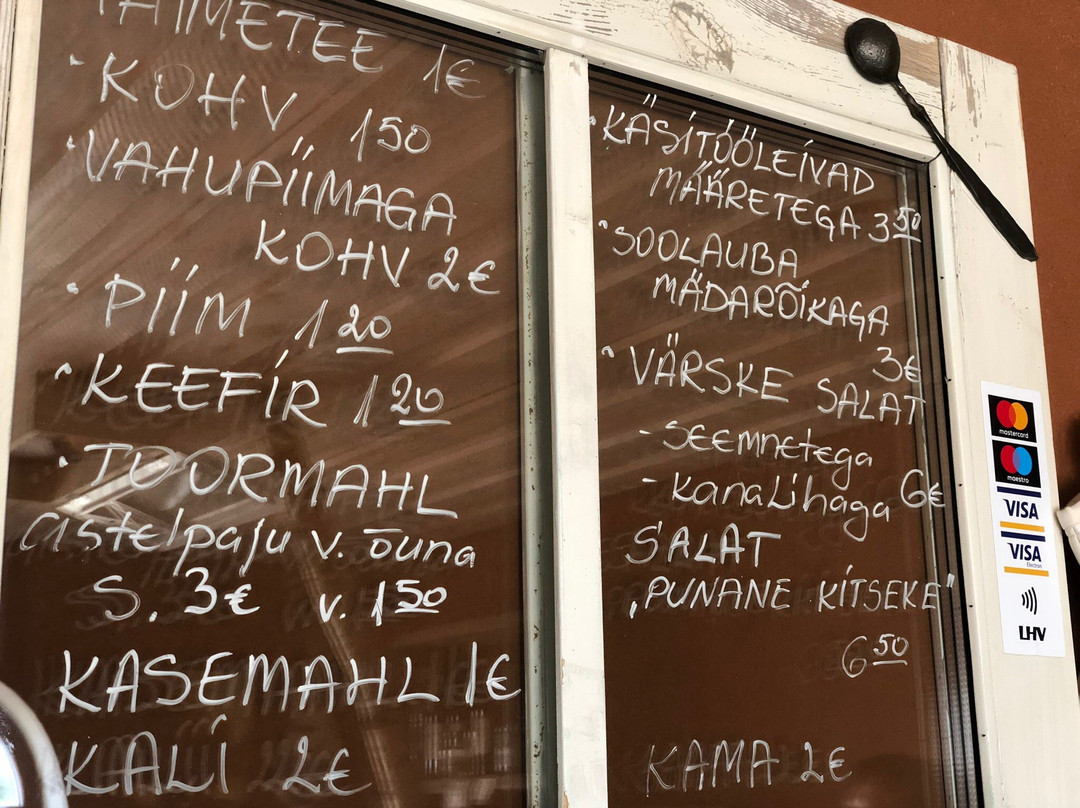 TAIMETEE 1€
KOHV 150
VAHUPIIMAGA
KOHV 2€
PIIM 120
KEEFIR 120
TOORMAHL
astelpaju v. õuna
S. 3€ v. 150
KASEMAHL 1€
KALI 2€
KÄSITÖÖLEIVAD
MÄÄRETEGA 350
SOOLAUBA
MÄDARÕIKAGA
3€
VÄRSKE SALAT
- SEEMNETEGA
- KANALIHAGA 6€
SALAT
„PUNANE KITSEKE"
650
KAMA 2€
mastercard
maestro
VISA
VISA
Electron
LHV